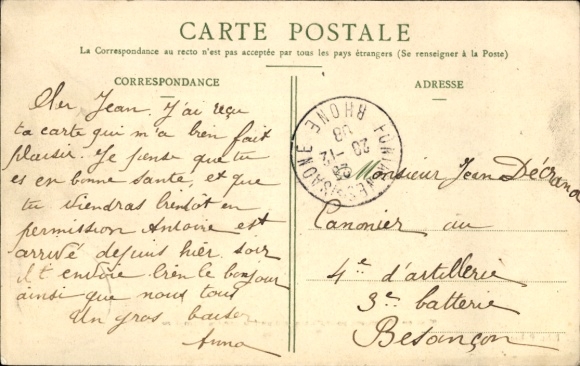 CARTE POSTALE
La Correspondance au recto n'est pas acceptée par tous les pays étrangers (Se renseigner à la Poste)
CORRESPONDANCE
Cher Jean. J'ai reçu
ta carte qui m'a bien fait
plaisir. Je pense que tu
es en bonne santé, et que
tu viendras bientot en
permission Antoine est
arrivé depuis hier soir
Il t envoie bien le bonjour
ainsi que nous tous
Un gros baiser
Anna
ADRESSE
FONTAINES-S-SAONE
RHONE
20
12
08
Monsieur Jean
Canonier au
4e d'artillerie
3e batterie
Besançon